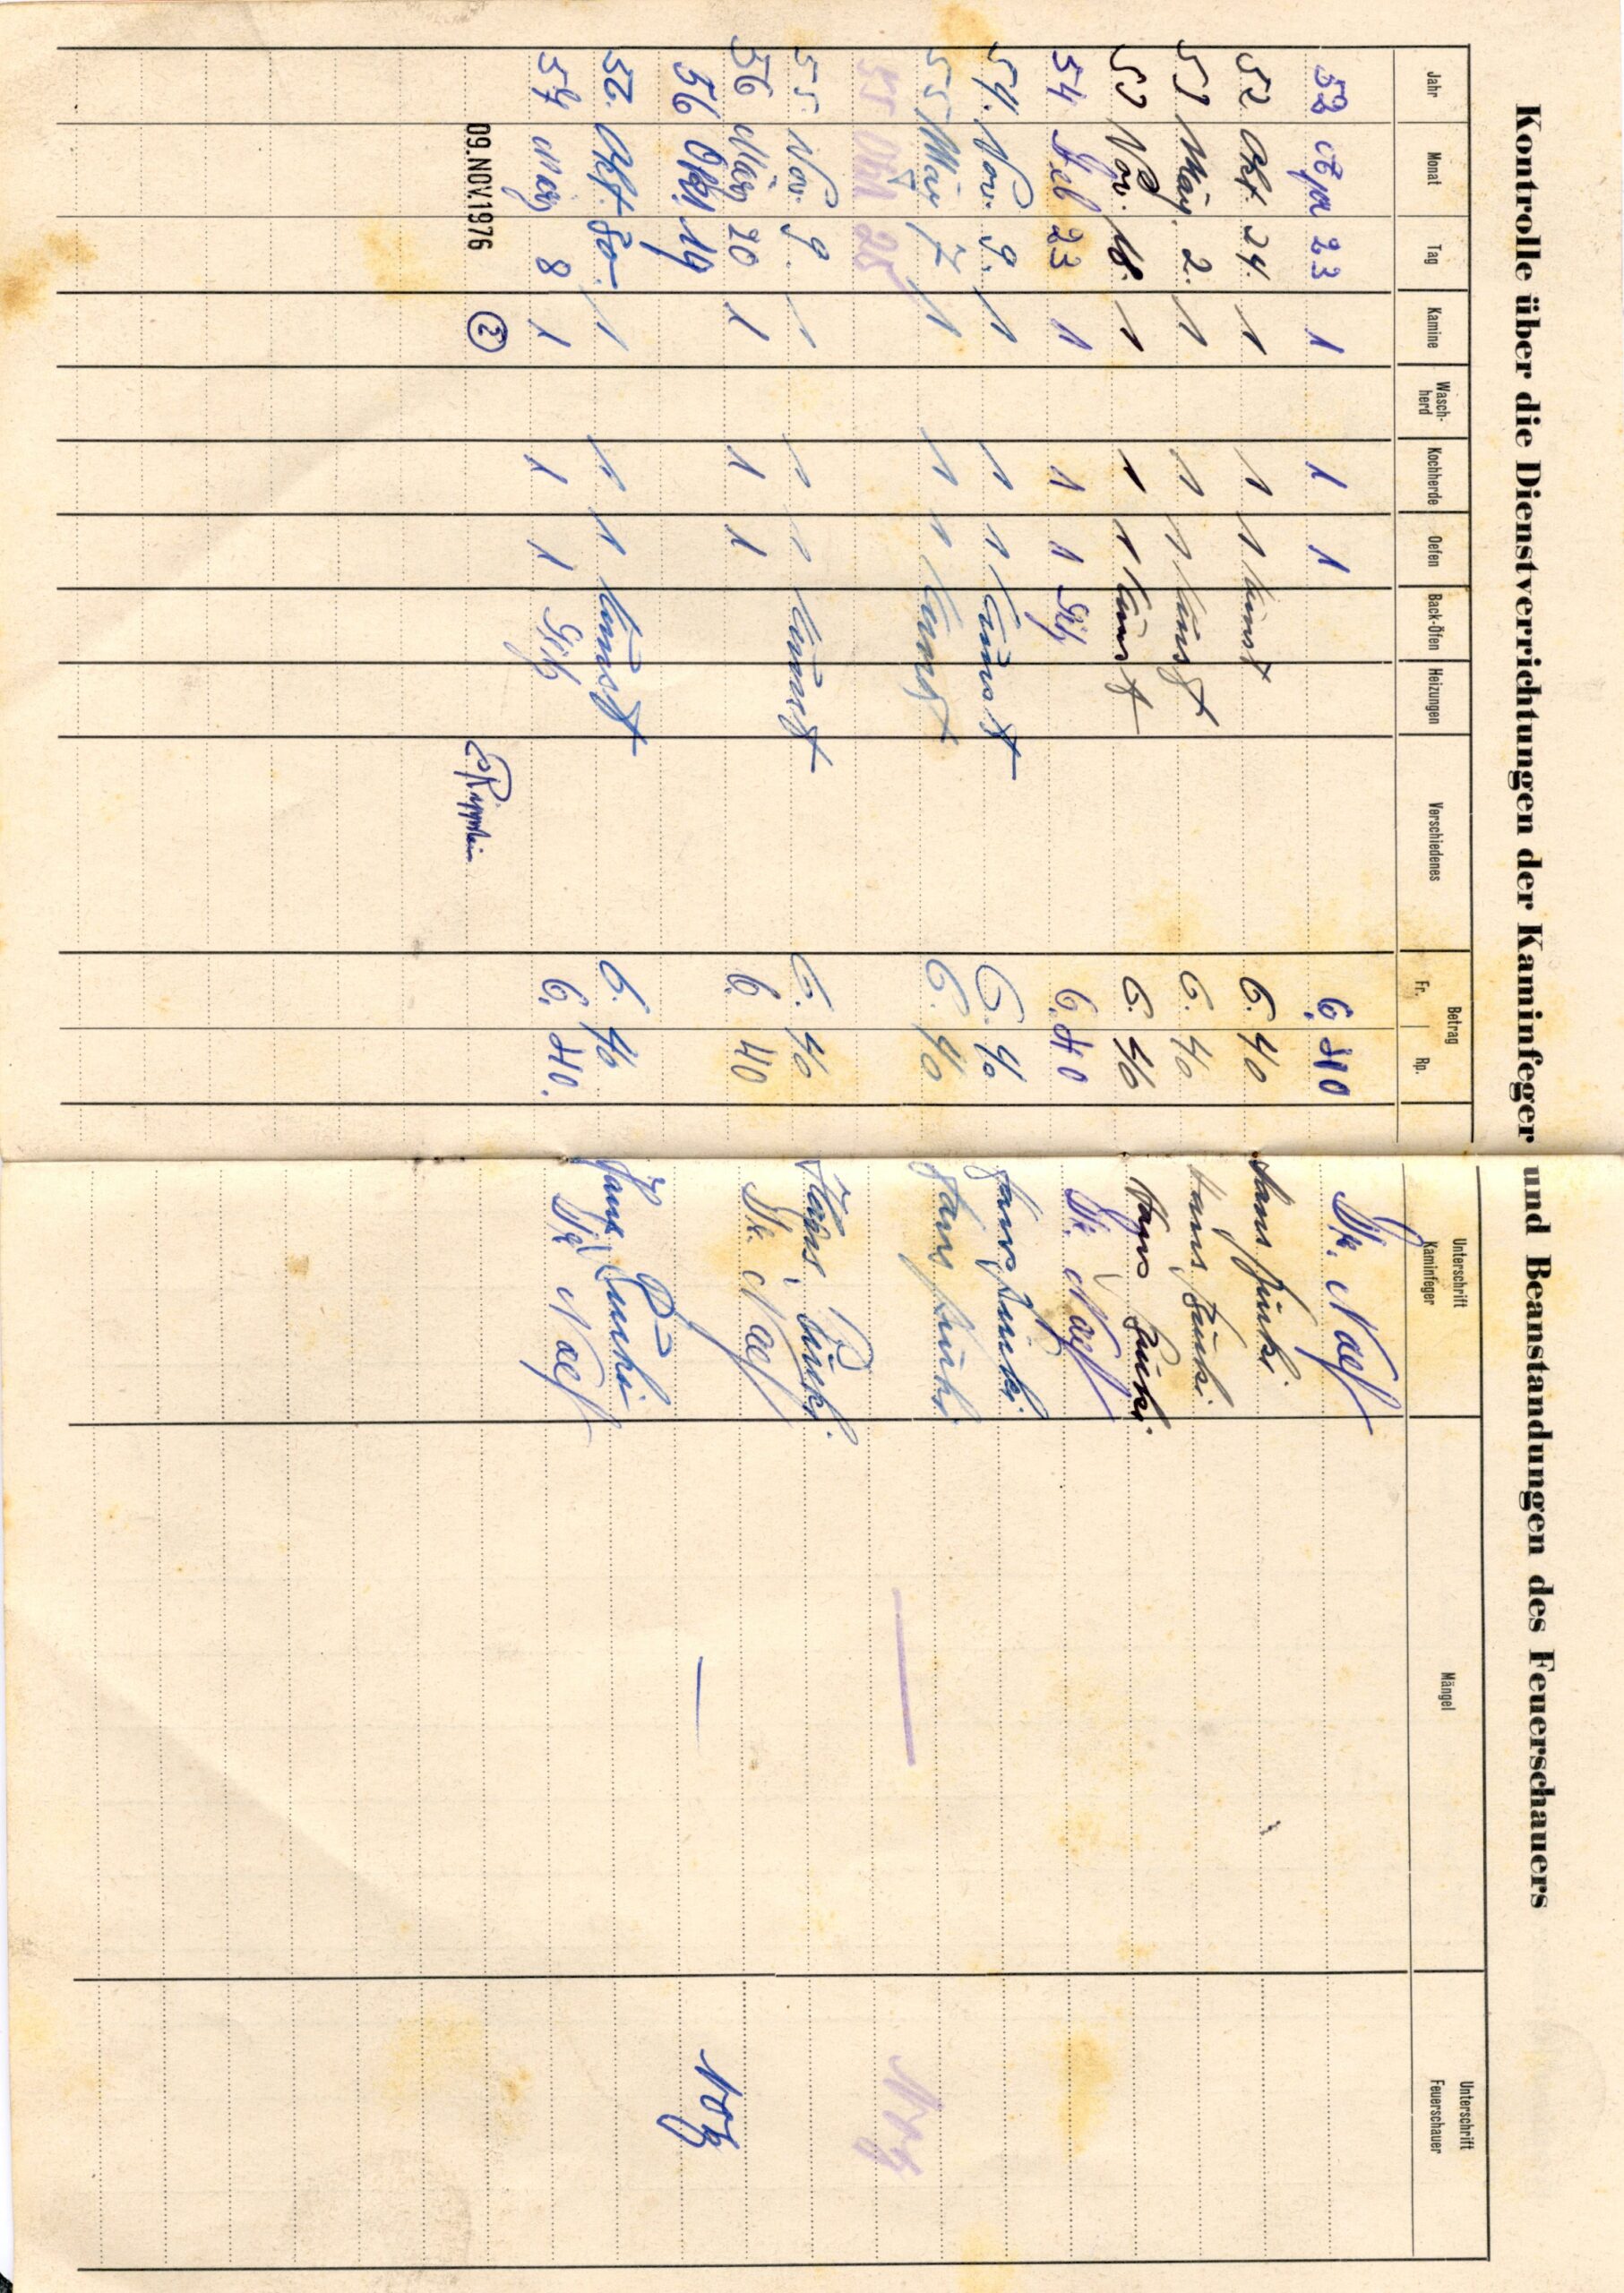 Kontrolle über die Dienstverrichtungen der Kaminfeger und Beanstandungen des Feuerschauers
Jahr Monat Tag Kamine Wasch-herd Kochherde Oefen Back-Öfen Heizungen Verschiedenes Betrag Fr. Rp. Unterschrift Kaminfeger Mängel Unterschrift Feuerschauer
52 23 1 1 1 6. 40 Naef
52. Okt. 24. 1 1 1 Kunst 6. 40 Hans
53 März 2. 1 1 1 Kunst 6. 40 Hans
53 Nov. 18. 1 1 1 Kunst 6. 40 Hans
54 Feb 23 1 1 1 6. 40 Naef
54. Nov. 9. 1 1 1 Kunst 6. 40 Hans
55 März 7 1 1 1 Kunst 6. 40 Hans
55 Okt 28
55. Nov. 9. 1 1 1 Kunst 6. 40 Hans
56 März 20 1 1 1 6. 40 Naef
56 Okt. 19
56. Okt. 30. 1 1 1 Kunst 6. 40 Hans
57 März 8 1 1 1 6. 40. Naef
09.NOV.1976 2